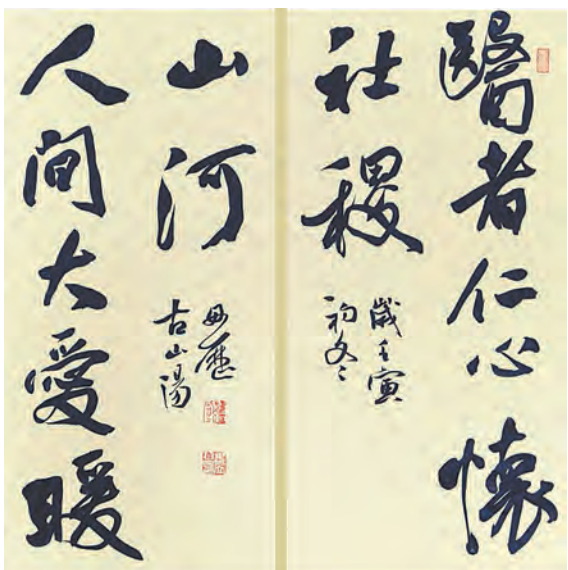 醫者仁心懷
社稷
歲壬寅
初冬
人間大愛暖
山河
古山陽